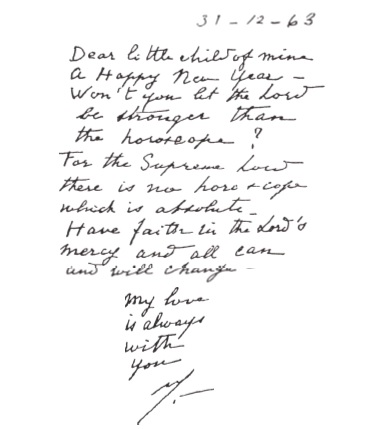 31-12-63
Dear little child of mine
a Happy New Year –
Won't you let the Lord
be stronger than
the horoscope ?
For the Supreme Lord
there is no horoscope
which is absolute –
Have faith in the Lord's
mercy and all can
and will change –
My love
is always
with
you